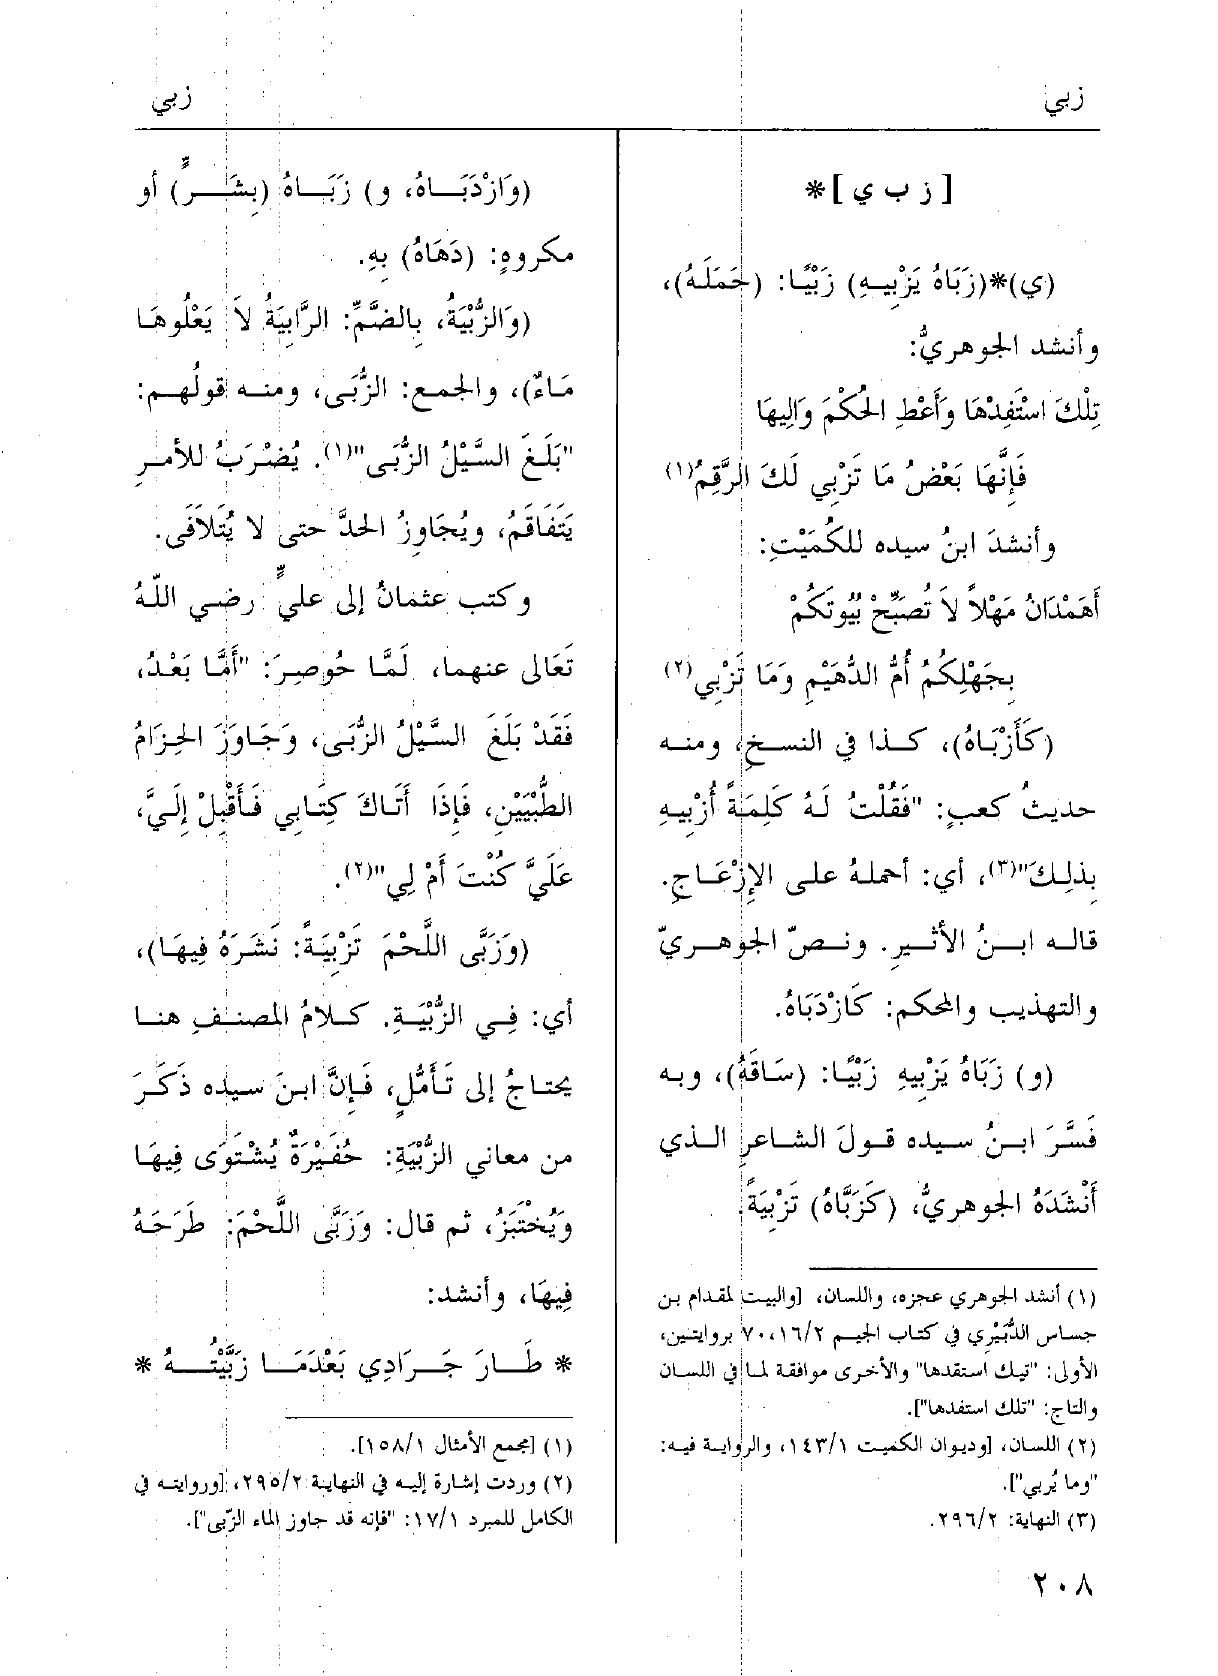 زبي
زبي
[ ز ب ي ]*
(ي)*(زَبَاهُ يَزْبِيهِ) زَبْيًا: (حَمَلَهُ)،
وأنشد الجوهريُّ:
تِلْكَ اسْتَفِدْهَا وَأَعْطِ الحُكْمَ وَالِيهَا
فَإِنَّهَا بَعْضُ مَا تَزْبِي لَكَ الرَّقِمُ(١)
وأنشدَ ابنُ سيده للكُمَيْتِ:
أَهَمْدَانُ مَهْلاً لاَ تُصَبِّحْ بُيُوتَكُمْ
بِجَهْلِكُمُ أُمُّ الدُّهَيْمِ وَمَا تَزْبِي(٢)
(كَأَزْبَاهُ)، كذا في النسخِ، ومنه
حديثُ كعبٍ: "فَقُلْتُ لَهُ كَلِمَةً أُزْبِيهِ
بِذلِكَ"(٣)، أي: أحملهُ على الإِزْعَاجِ.
قاله ابنُ الأثيرِ. ونصّ الجوهريّ
والتهذيب والمحكم: كَازْدَبَاهُ.
(و) زَبَاهُ يَزْبِيهِ زَبْيًا: (سَاقَهُ)، وبه
فَسَّرَ ابنُ سيده قولَ الشاعرِ الذي
أَنْشَدَهُ الجوهريُّ، (كَزَبَّاهُ) تَزْبِيَةً.
(١) أنشد الجوهري عجزه، واللسان، [والبيت لمقدام بن
جساس الدُّبَيْري في كتاب الجيم ١٦/٢، ٧٠ بروايتين،
الأولى: "تيك استقدها" والأخرى موافقة لما في اللسان
والتاج: "تلك استفدها"].
(٢) اللسان، [وديوان الكميت ١٤٣/١، والرواية فيه:
"وما يُربي"].
(٣) النهاية: ٢٩٦/٢.
٢٠٨
(وَازْدَبَاهُ، و) زَبَاهُ (بِشَرٍّ) أو
مكروهٍ: (دَهَاهُ) بِهِ.
(وَالزُّبْيَةُ، بِالضَّمِّ: الرَّابِيَةُ لاَ يَعْلُوهَا
مَاءٌ)، والجمع: الزُّبَى، ومنه قولُهم:
"بَلَغَ السَّيْلُ الزُّبَى"(١). يُضْرَبُ للأمرِ
يَتَفَاقَمُ، ويُجَاوِزُ الحدَّ حتى لا يُتَلاَفَى.
وكتب عثمانُ إلى عليٍّ رضي اللّهُ
تَعَالى عنهما، لَمَّا حُوصِرَ: "أَمَّا بَعْدُ،
فَقَدْ بَلَغَ السَّيْلُ الزُّبَى، وَجَاوَزَ الحِزَامُ
الطُّبْيَيْنِ، فَإِذَا أَتَاكَ كِتَابِي فَأَقْبِلْ إِلَيَّ،
عَلَيَّ كُنْتَ أَمْ لِي"(٢).
(وَزَبَّى اللَّحْمَ تَزْبِيَةً: نَشَرَهُ فِيهَا)،
أي: فِي الزُّبْيَةِ. كلامُ المصنفِ هنا
يحتاجُ إلى تَأَمُّلٍ، فَإِنَّ ابنَ سيده ذَكَرَ
من معاني الزُّبْيَةِ: حُفَيْرَةٌ يُشْتَوَى فِيهَا
وَيُخْتَبَزُ، ثم قال: وَزَبَّى اللَّحْمَ: طَرَحَهُ
فِيهَا، وأنشد:
* طَارَ جَرَادِي بَعْدَمَا زَبَّيْتُهُ *
(١) [مجمع الأمثال ١٥٨/١].
(٢) وردت إشارة إليه في النهاية ٢٩٥/٢، [وروايته في
الكامل للمبرد ١٧/١: "فإنه قد جاوز الماء الزّبى"].